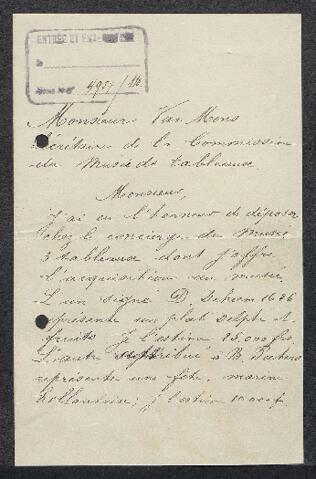 ENTRÉE ET
le
4957/
Monsieur Van Mons
Secrétaire de la Commission
du Musée de tableaux.
Monsieur,
J'ai eu l'honneur de déposer
chez le concierge du musée
3 tableaux dont j'offre
l'acquisition au musée.
L'un signé D. Deheem 1696
représente un plat Delpt et
fruits je l'estime 25.000 frs.
L'autre attribué à B. Peeters
représente une fête marine
hollandaise; j l'estime